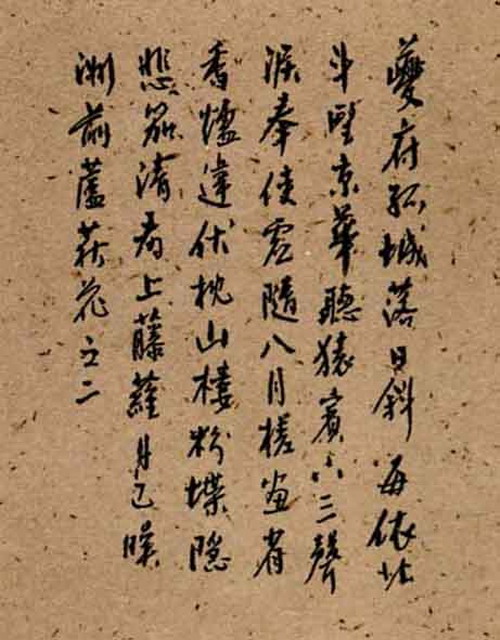 夔府孤城落日斜每依北
斗望京華聽猿實下三聲
淚奉使虛隨八月槎畫省
香爐違伏枕山樓粉堞隱
悲笳請看上藤蘿月已暎
洲前蘆荻花之二